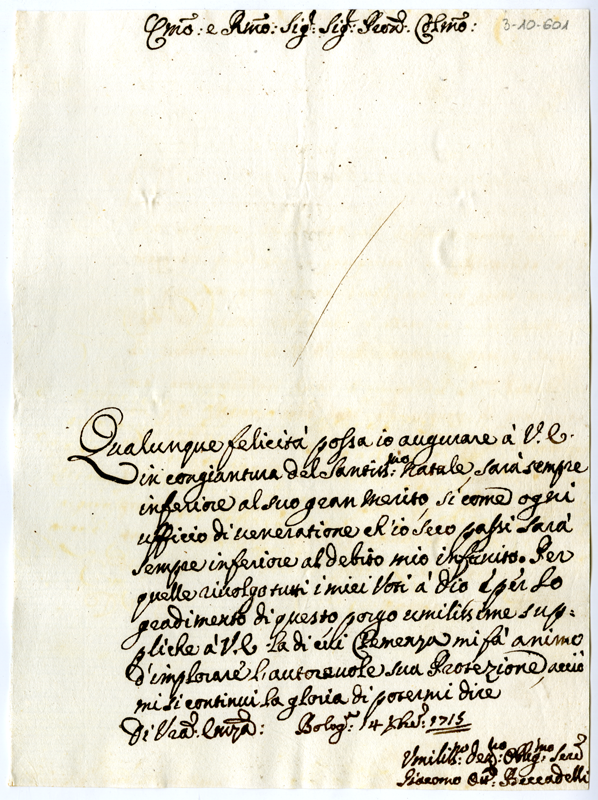 Emõ: e Rmõ: Sig.r Sig.r Pron̄: Colmõ:
3-10-601
Qualunque felicità possa io augurare à V. E.
in congiantura del Santiss:mo Natale, sarà sempre
inferiore al suo gran merito, si come ogni
ufficio di veneratione ch'io seco passi sarà
sempre inferiore al debito mio infinito. Per
quelle rivolgo tutti i miei Voti à Dio è per lo
gradimento di questo porgo umilissime sup=
pliche à V. E. la di cui Clemenza mi fà animo
d'implorare l'autorevole sua Protezione, acciò
mi si continui la gloria di potermi dire
Di Vra Emza: Bolog.a 14 Xbre 1715
Umiliss:mo Dev:mo Obblig:mo Sere
Giacomo Beccadelli